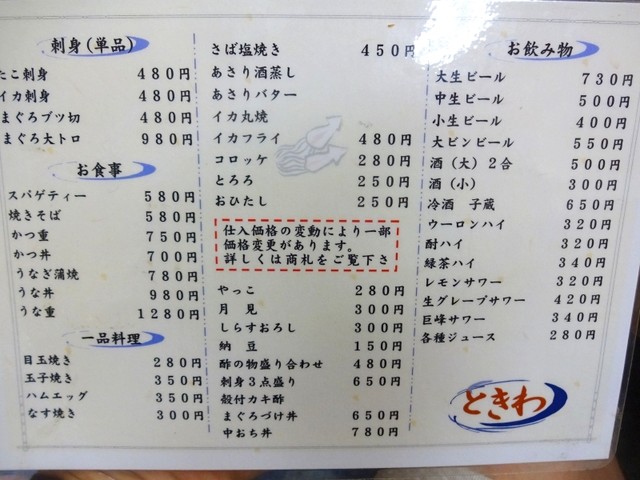 刺身(単品)
たこ刺身 480円
イカ刺身 480円
まぐろブツ切 480円
まぐろ大トロ 980円
お食事
スパゲティー 580円
焼きそば 580円
かつ重 750円
かつ丼 700円
うなぎ蒲焼 780円
うな丼 980円
うな重 1280円
一品料理
目玉焼き 280円
玉子焼き 350円
ハムエッグ 350円
なす焼き 300円
さば塩焼き 450円
あさり酒蒸し
あさりバター
イカ丸焼
イカフライ 480円
コロッケ 280円
とろろ 250円
おひたし 250円
仕入価格の変動により一部
価格変更があります。
詳しくは商札をご覧下さ
やっこ 280円
月見 300円
しらすおろし 300円
納豆 150円
酢の物盛り合わせ 480円
刺身3点盛り 650円
殻付カキ酢
まぐろづけ丼 650円
中おち丼 780円
お飲み物
大生ビール 730円
中生ビール 500円
小生ビール 400円
大ビンビール 550円
酒(大)2合 500円
酒(小) 300円
冷酒 子蔵 650円
ウーロンハイ 320円
酎ハイ 320円
緑茶ハイ 340円
レモンサワー 320円
生グレープサワー 420円
巨峰サワー 340円
各種ジュース 280円
ときわ